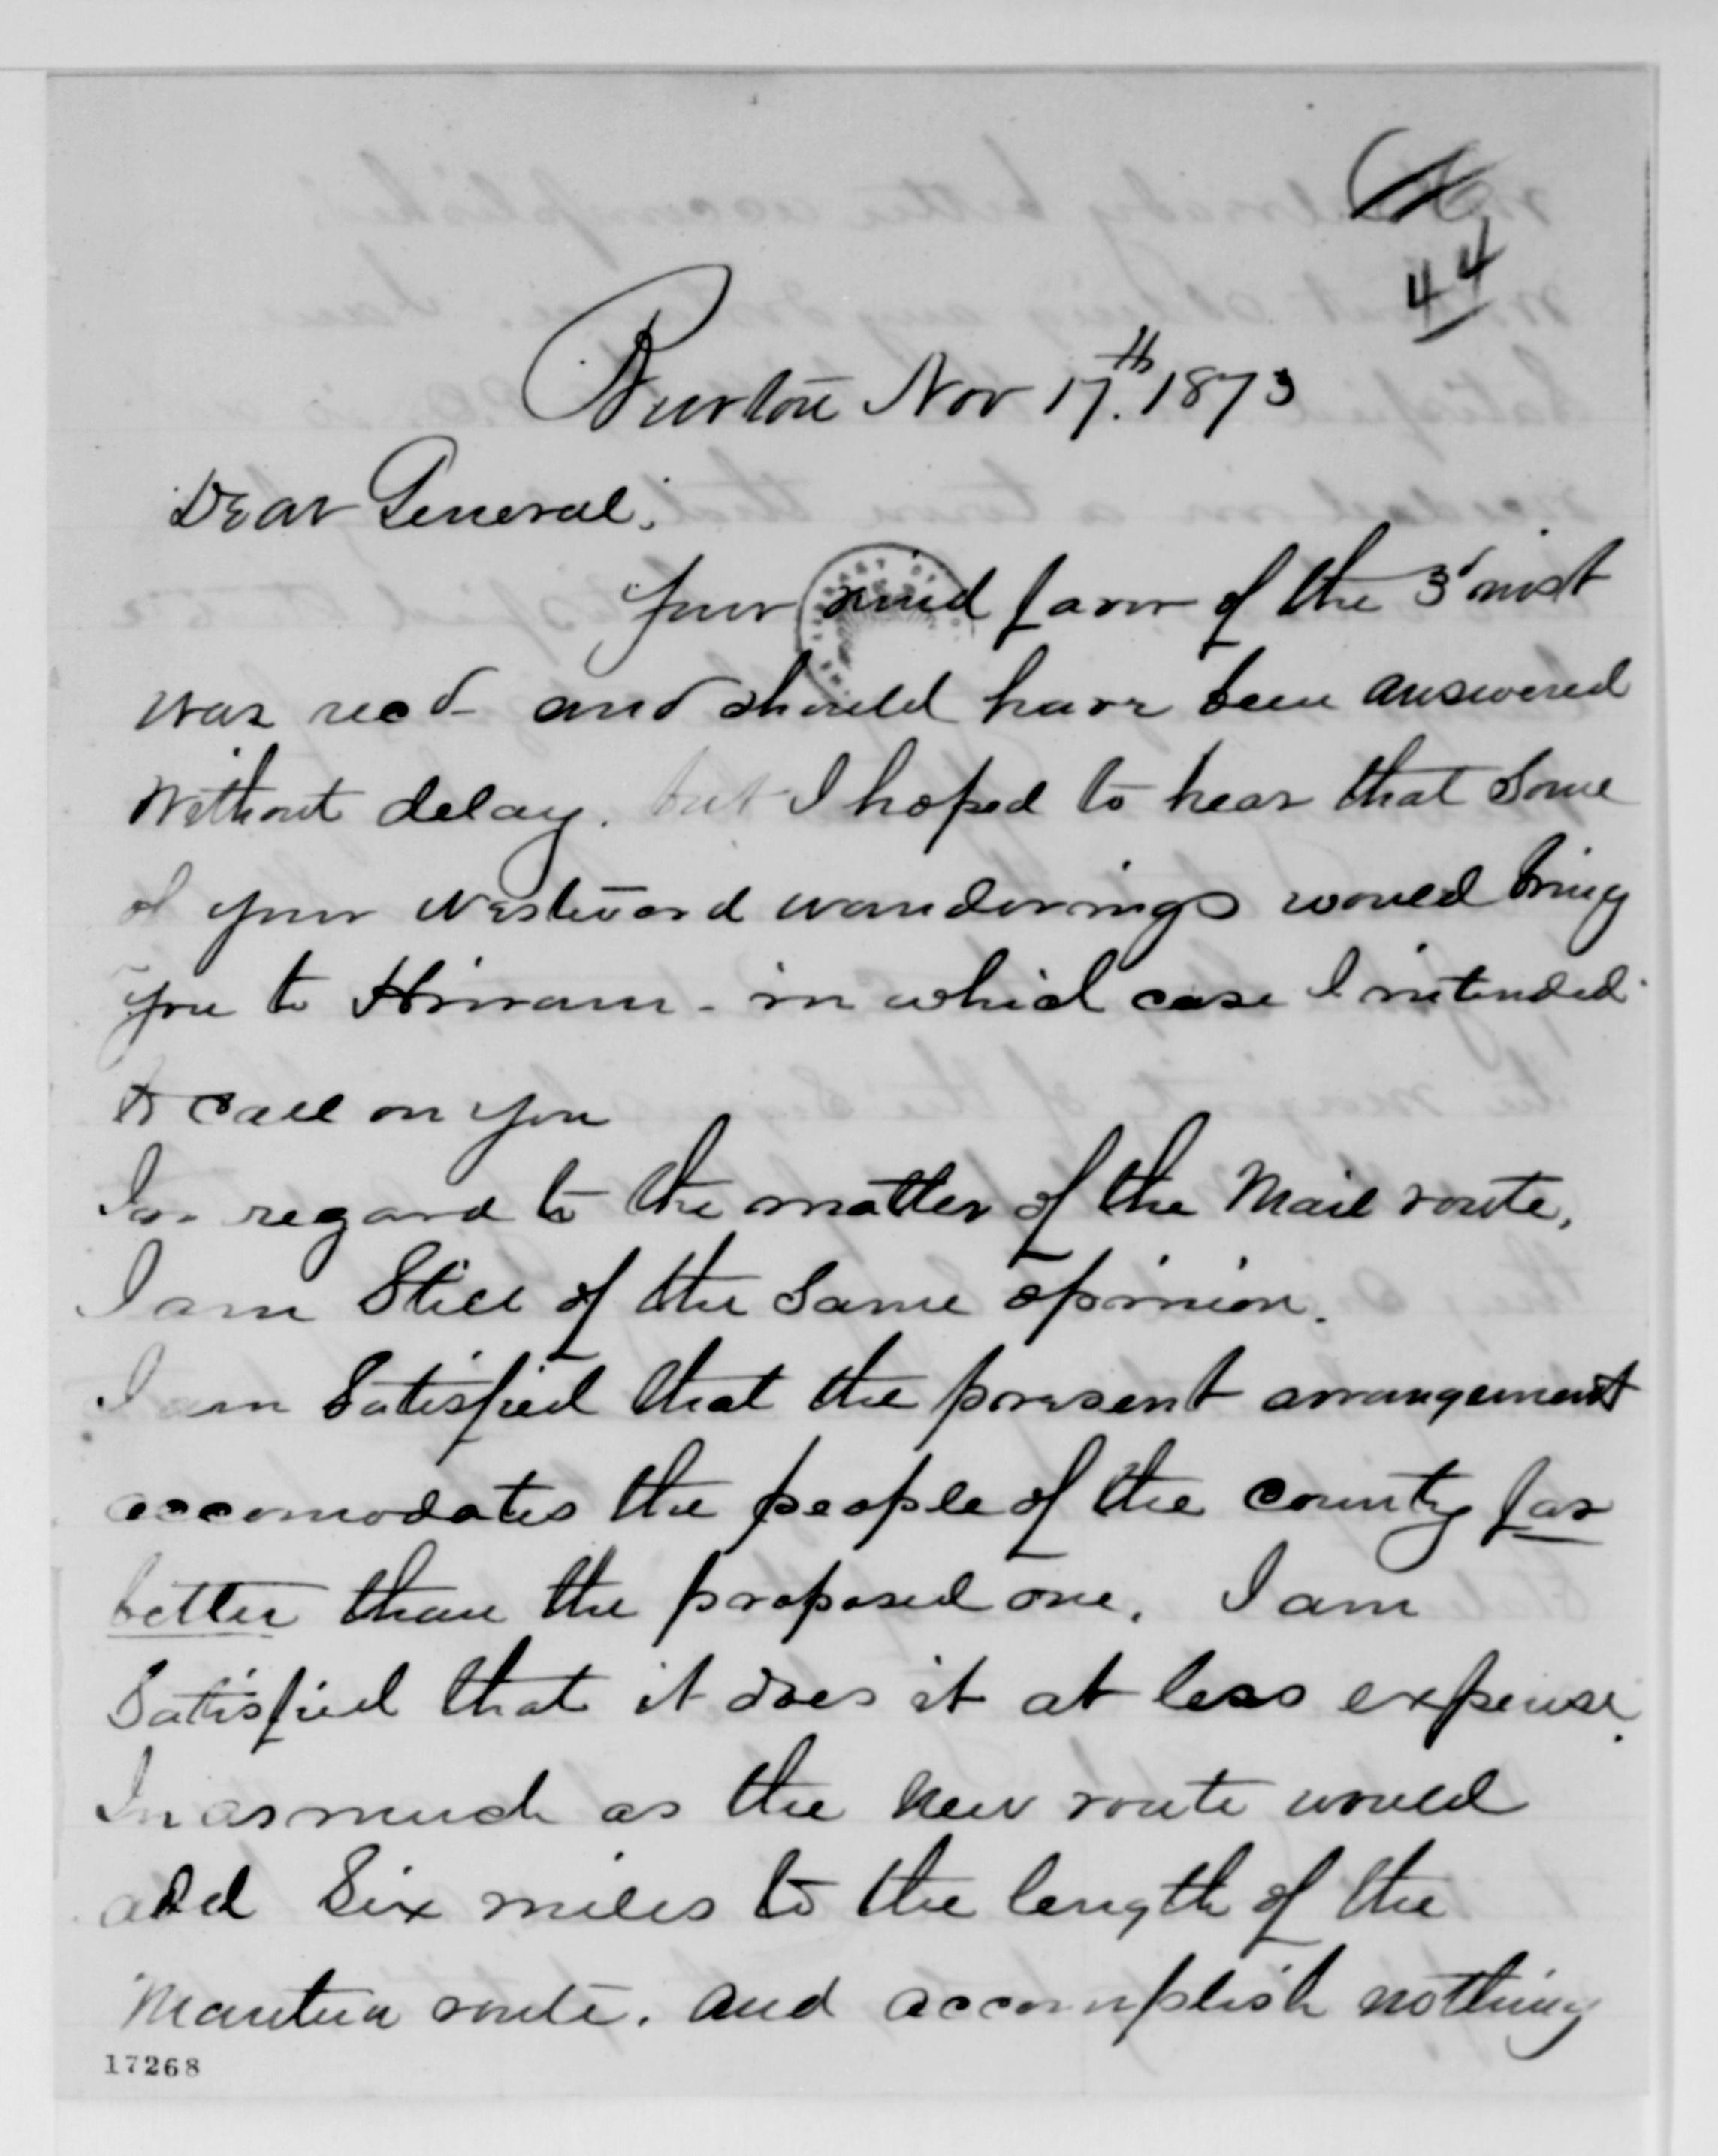 44
Burton Nov 17th. 1873
Dear General:
Your kind favor of the 3d inst
was recd and should have been answered
without delay. but I hoped to hear that Some
of your westward wanderings would bring
you to Hiram - in which case I intended
to call on you
In regard to the matter of the Mail route,
I am Still of the Same opinion.
I am Satisfied that the present arrangement
accomodates the people of the county far
better than the proposed one. I am
Satisfied that it does it at less expense.
In as much as the new route would
add Six miles to the length of the
Mantua route. and accomplish nothing
17268